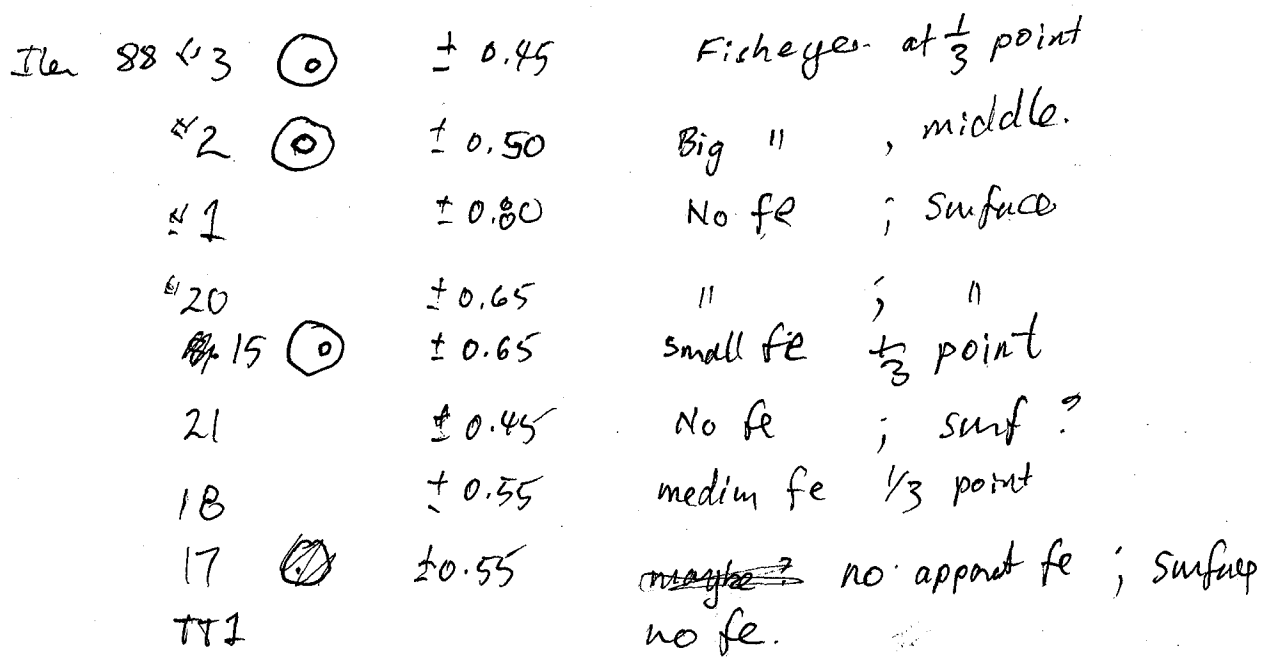 88 #3 ± 0.45 Fisheyes at 1/3 point
#2 ± 0.50 Big " , middle.
#1 ± 0.80 No fe ; Surface
#20 ± 0.65 " ; "
15 ± 0.65 small fe 1/3 point
21 ± 0.45 No fe ; surf ?
18 ± 0.55 medium fe 1/3 point
17 ± 0.55 maybe ? no apparent fe ; Surface
TT1 no fe.